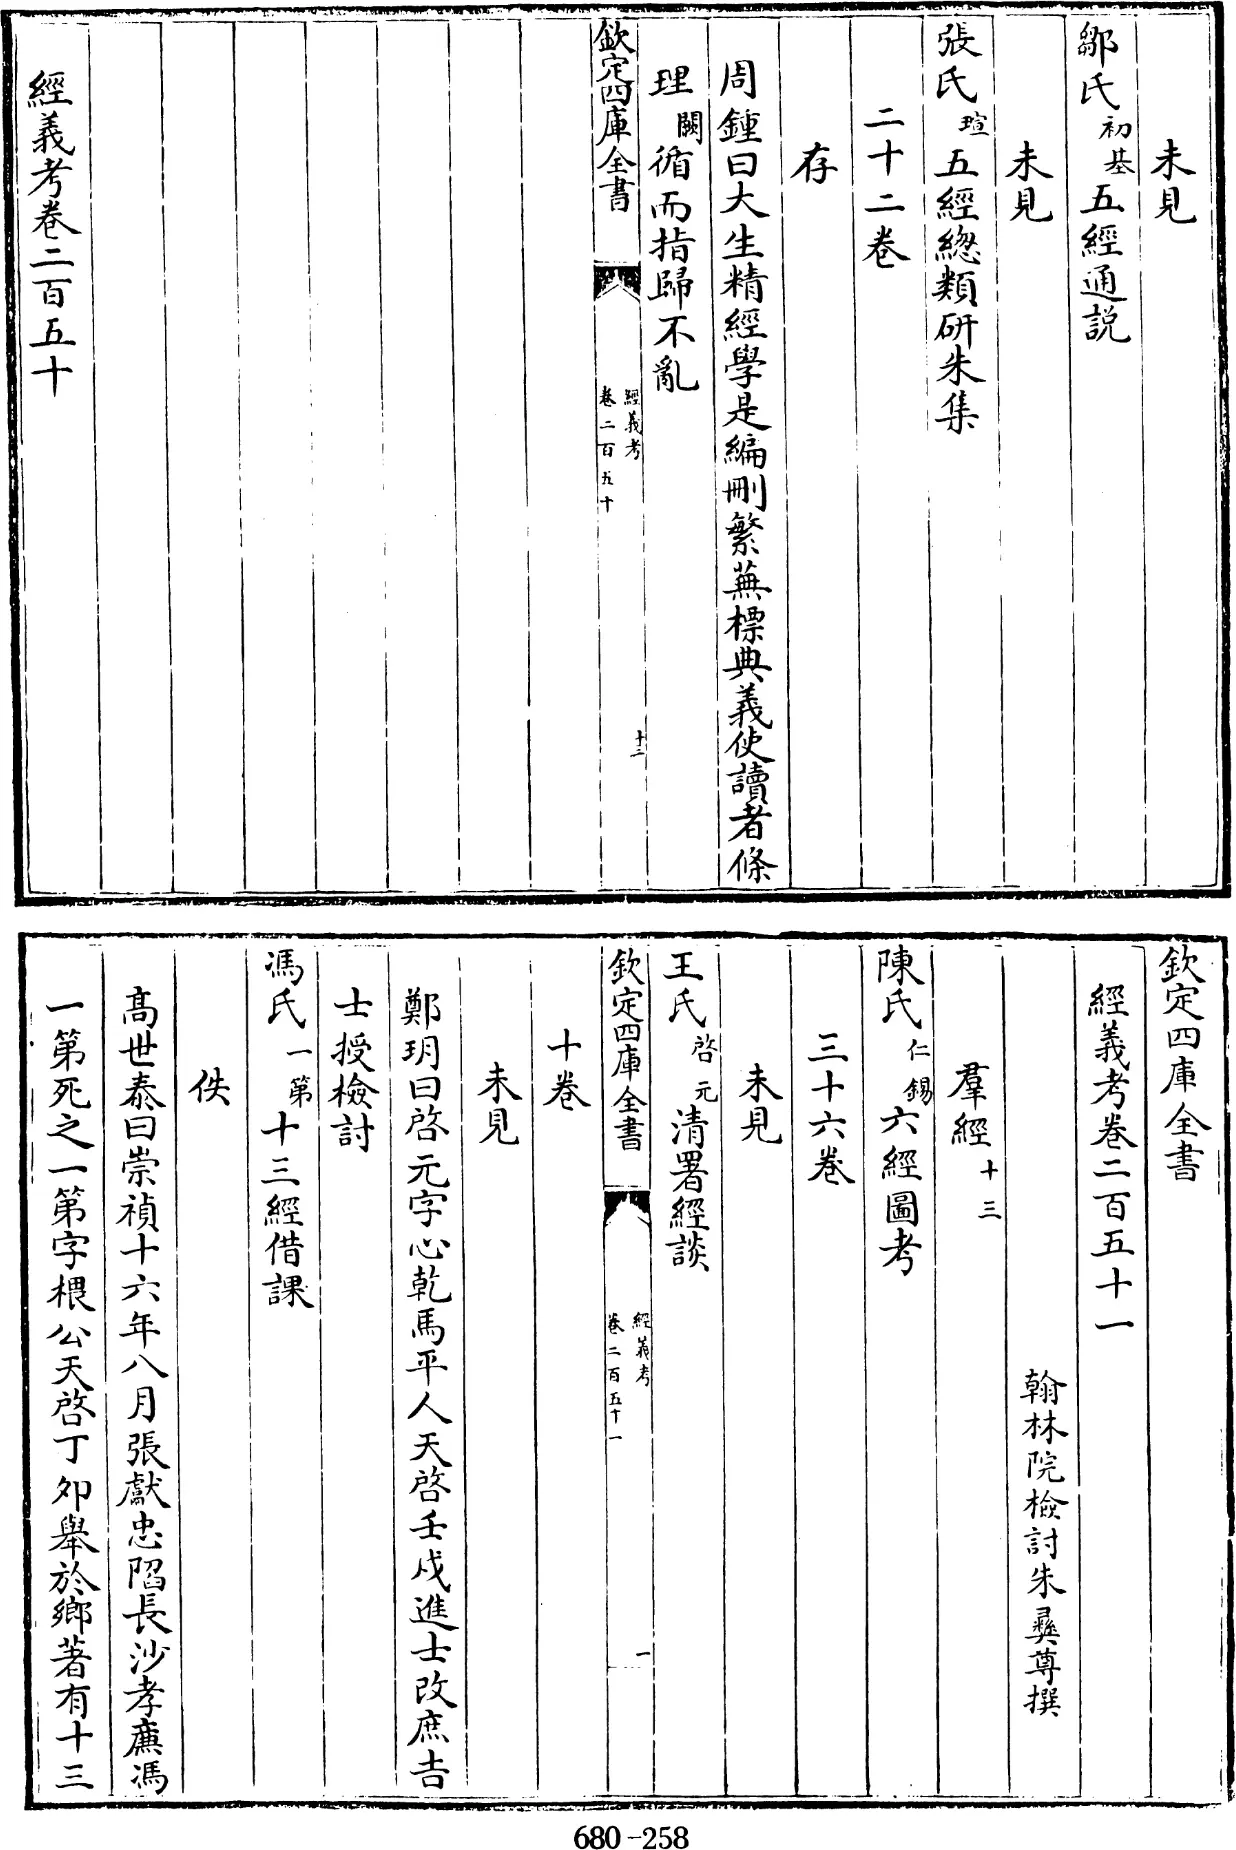 未見
鄒氏初基五經通說
未見
張氏瑄五經總類研朱集
二十二卷
存
周鍾曰大生精經學是編刪繁蕪標典義使讀者條
理闕循而指歸不亂
欽定四庫全書
經義考
卷二百五十
十二
經義考卷二百五十
欽定四庫全書
經義考卷二百五十一
翰林院檢討朱彝尊撰
羣經十三
陳氏仁錫六經圖考
三十六卷
未見
王氏啓元清署經談
欽定四庫全書
經義考
卷二百五十一
一
十卷
未見
鄭玥曰啓元字心乾馬平人天啓壬戌進士改庶吉
士授檢討
馮氏一第十三經借課
佚
高世泰曰崇禎十六年八月張獻忠陷長沙孝廉馮
一第死之一第字椳公天啓丁卯舉於鄉著有十三
680-258